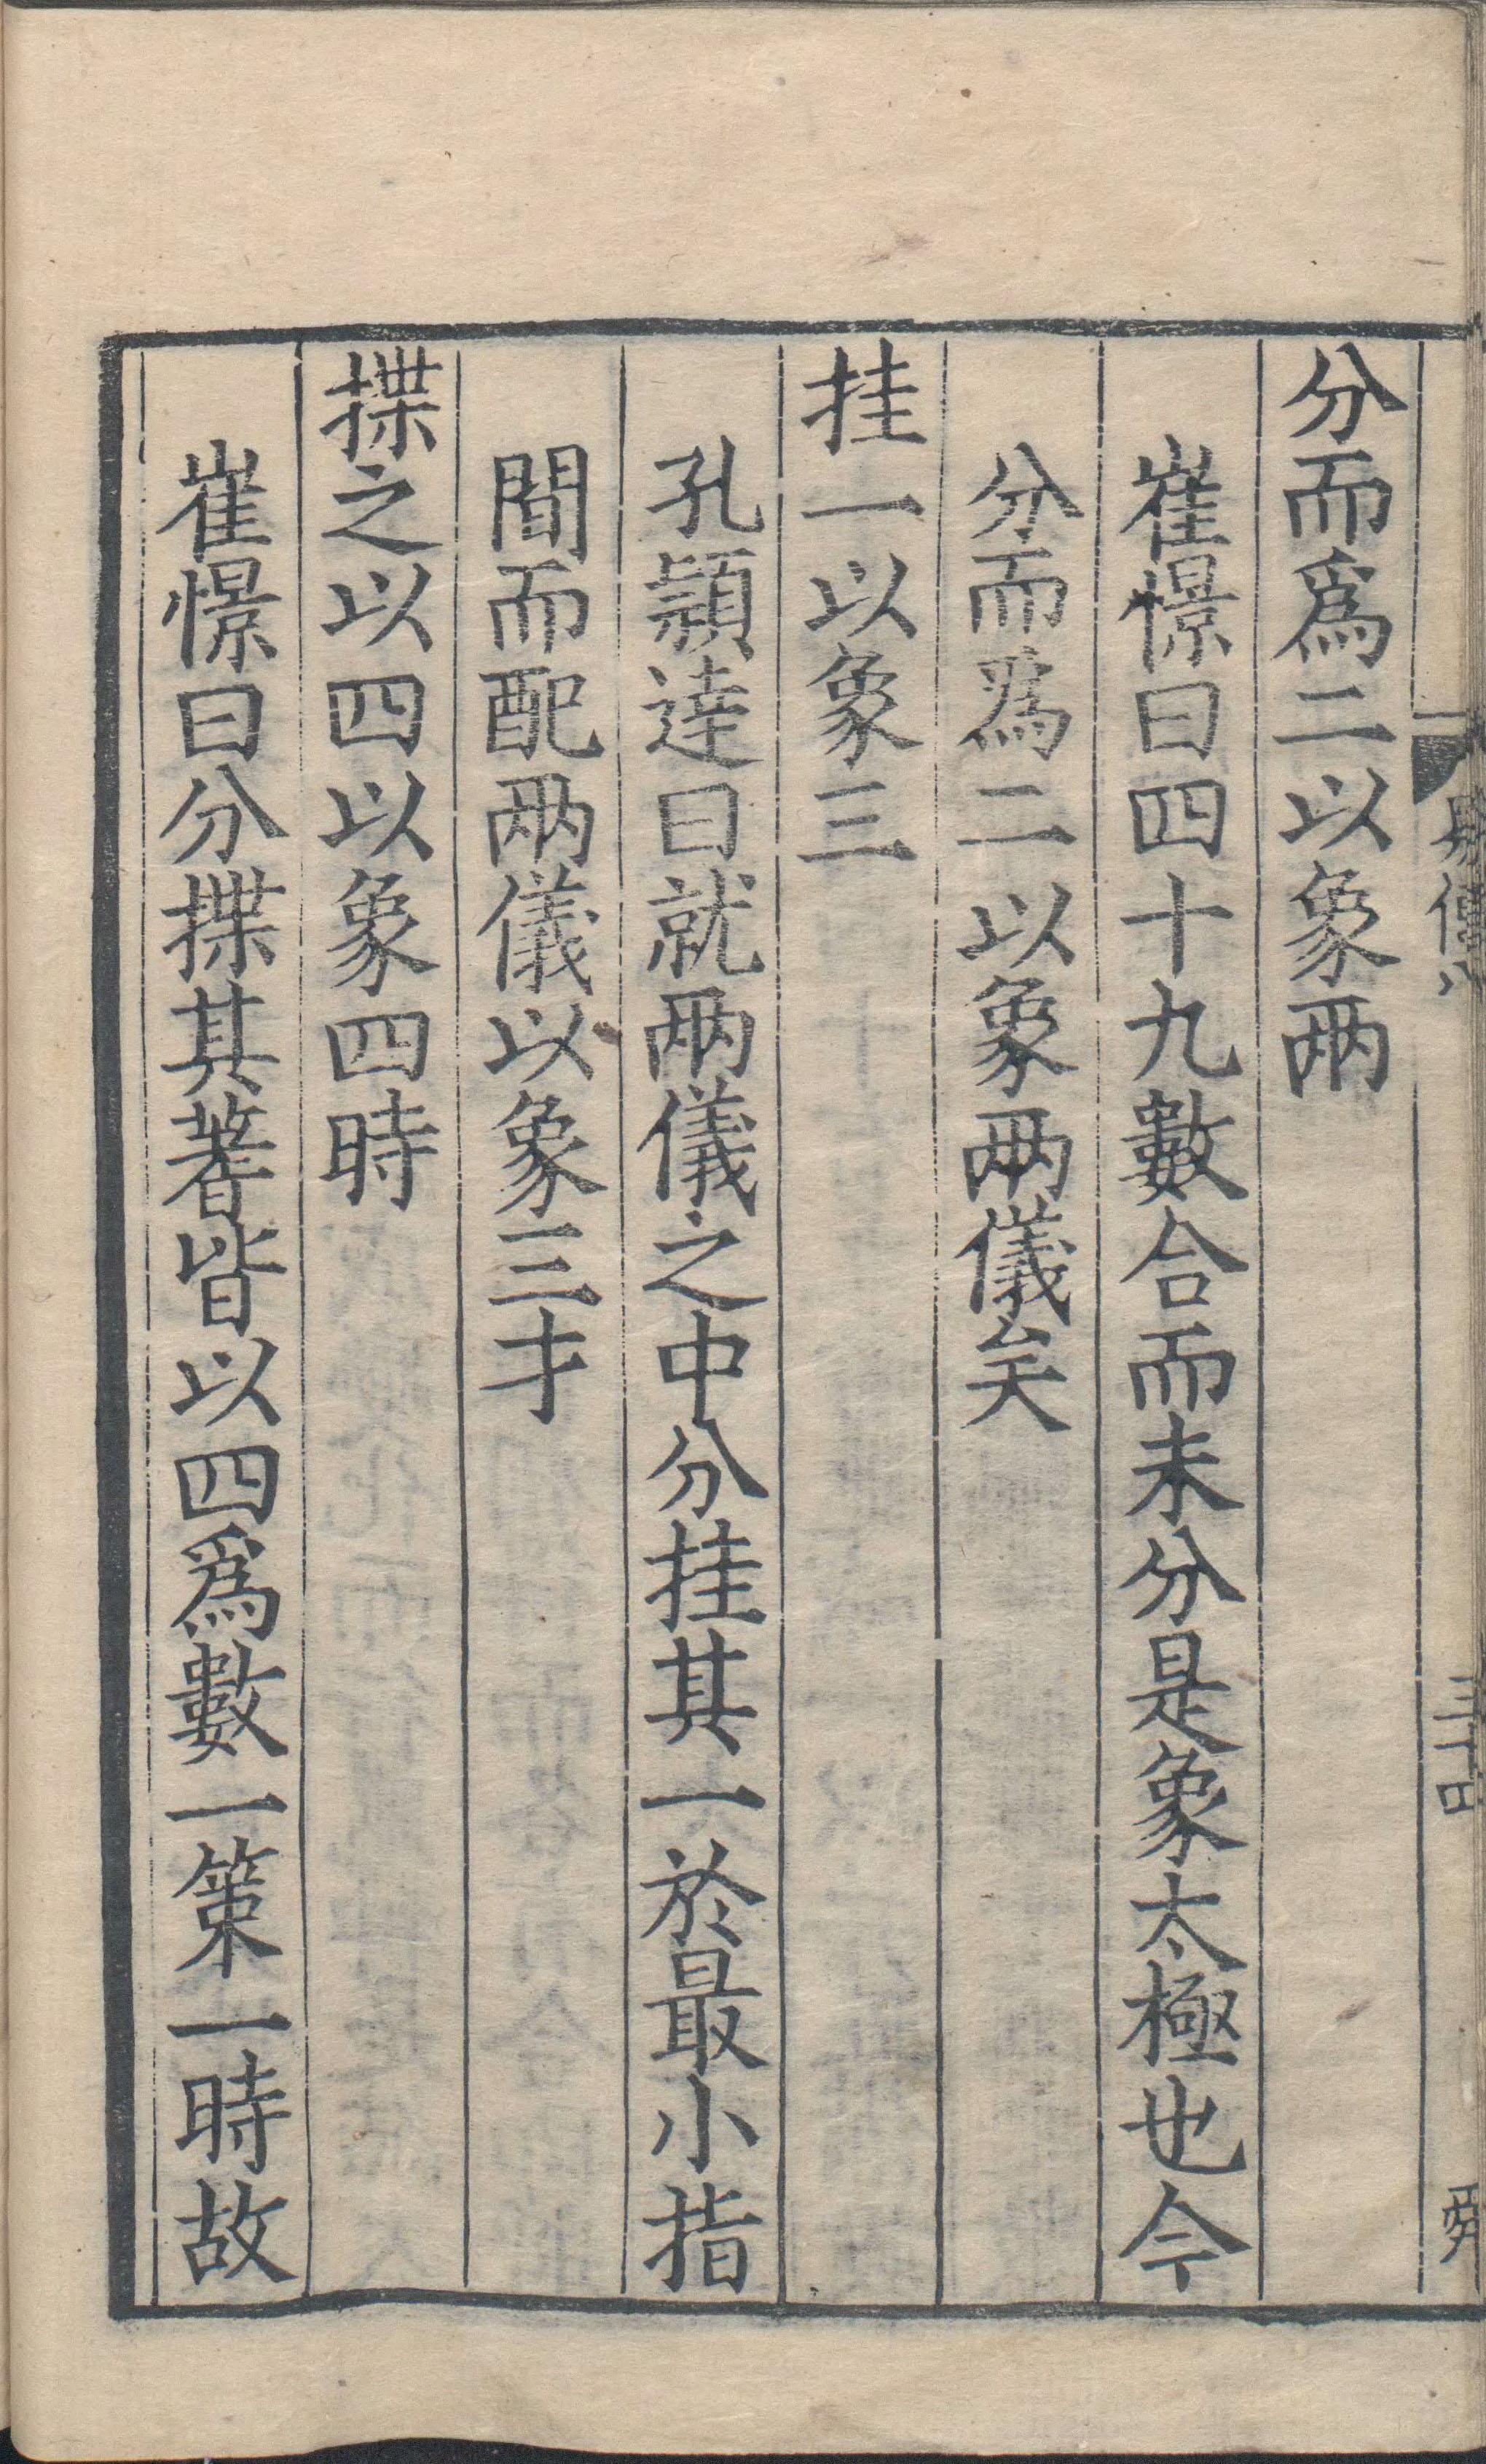 分而爲二以象兩
崔憬曰四十九數合而未分是象太極也今
分而爲二以象兩儀矣
挂一以象三
孔穎達曰就兩儀之中分挂其一於最小指
間而配兩儀以象三才
揲之以四以象四時
崔憬曰分揲其蓍皆以四爲數一策一時故